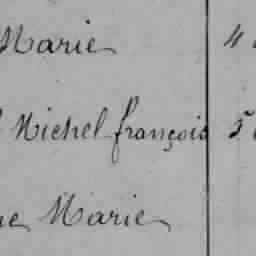 Marie 4
Michel françois 5
ne Marie